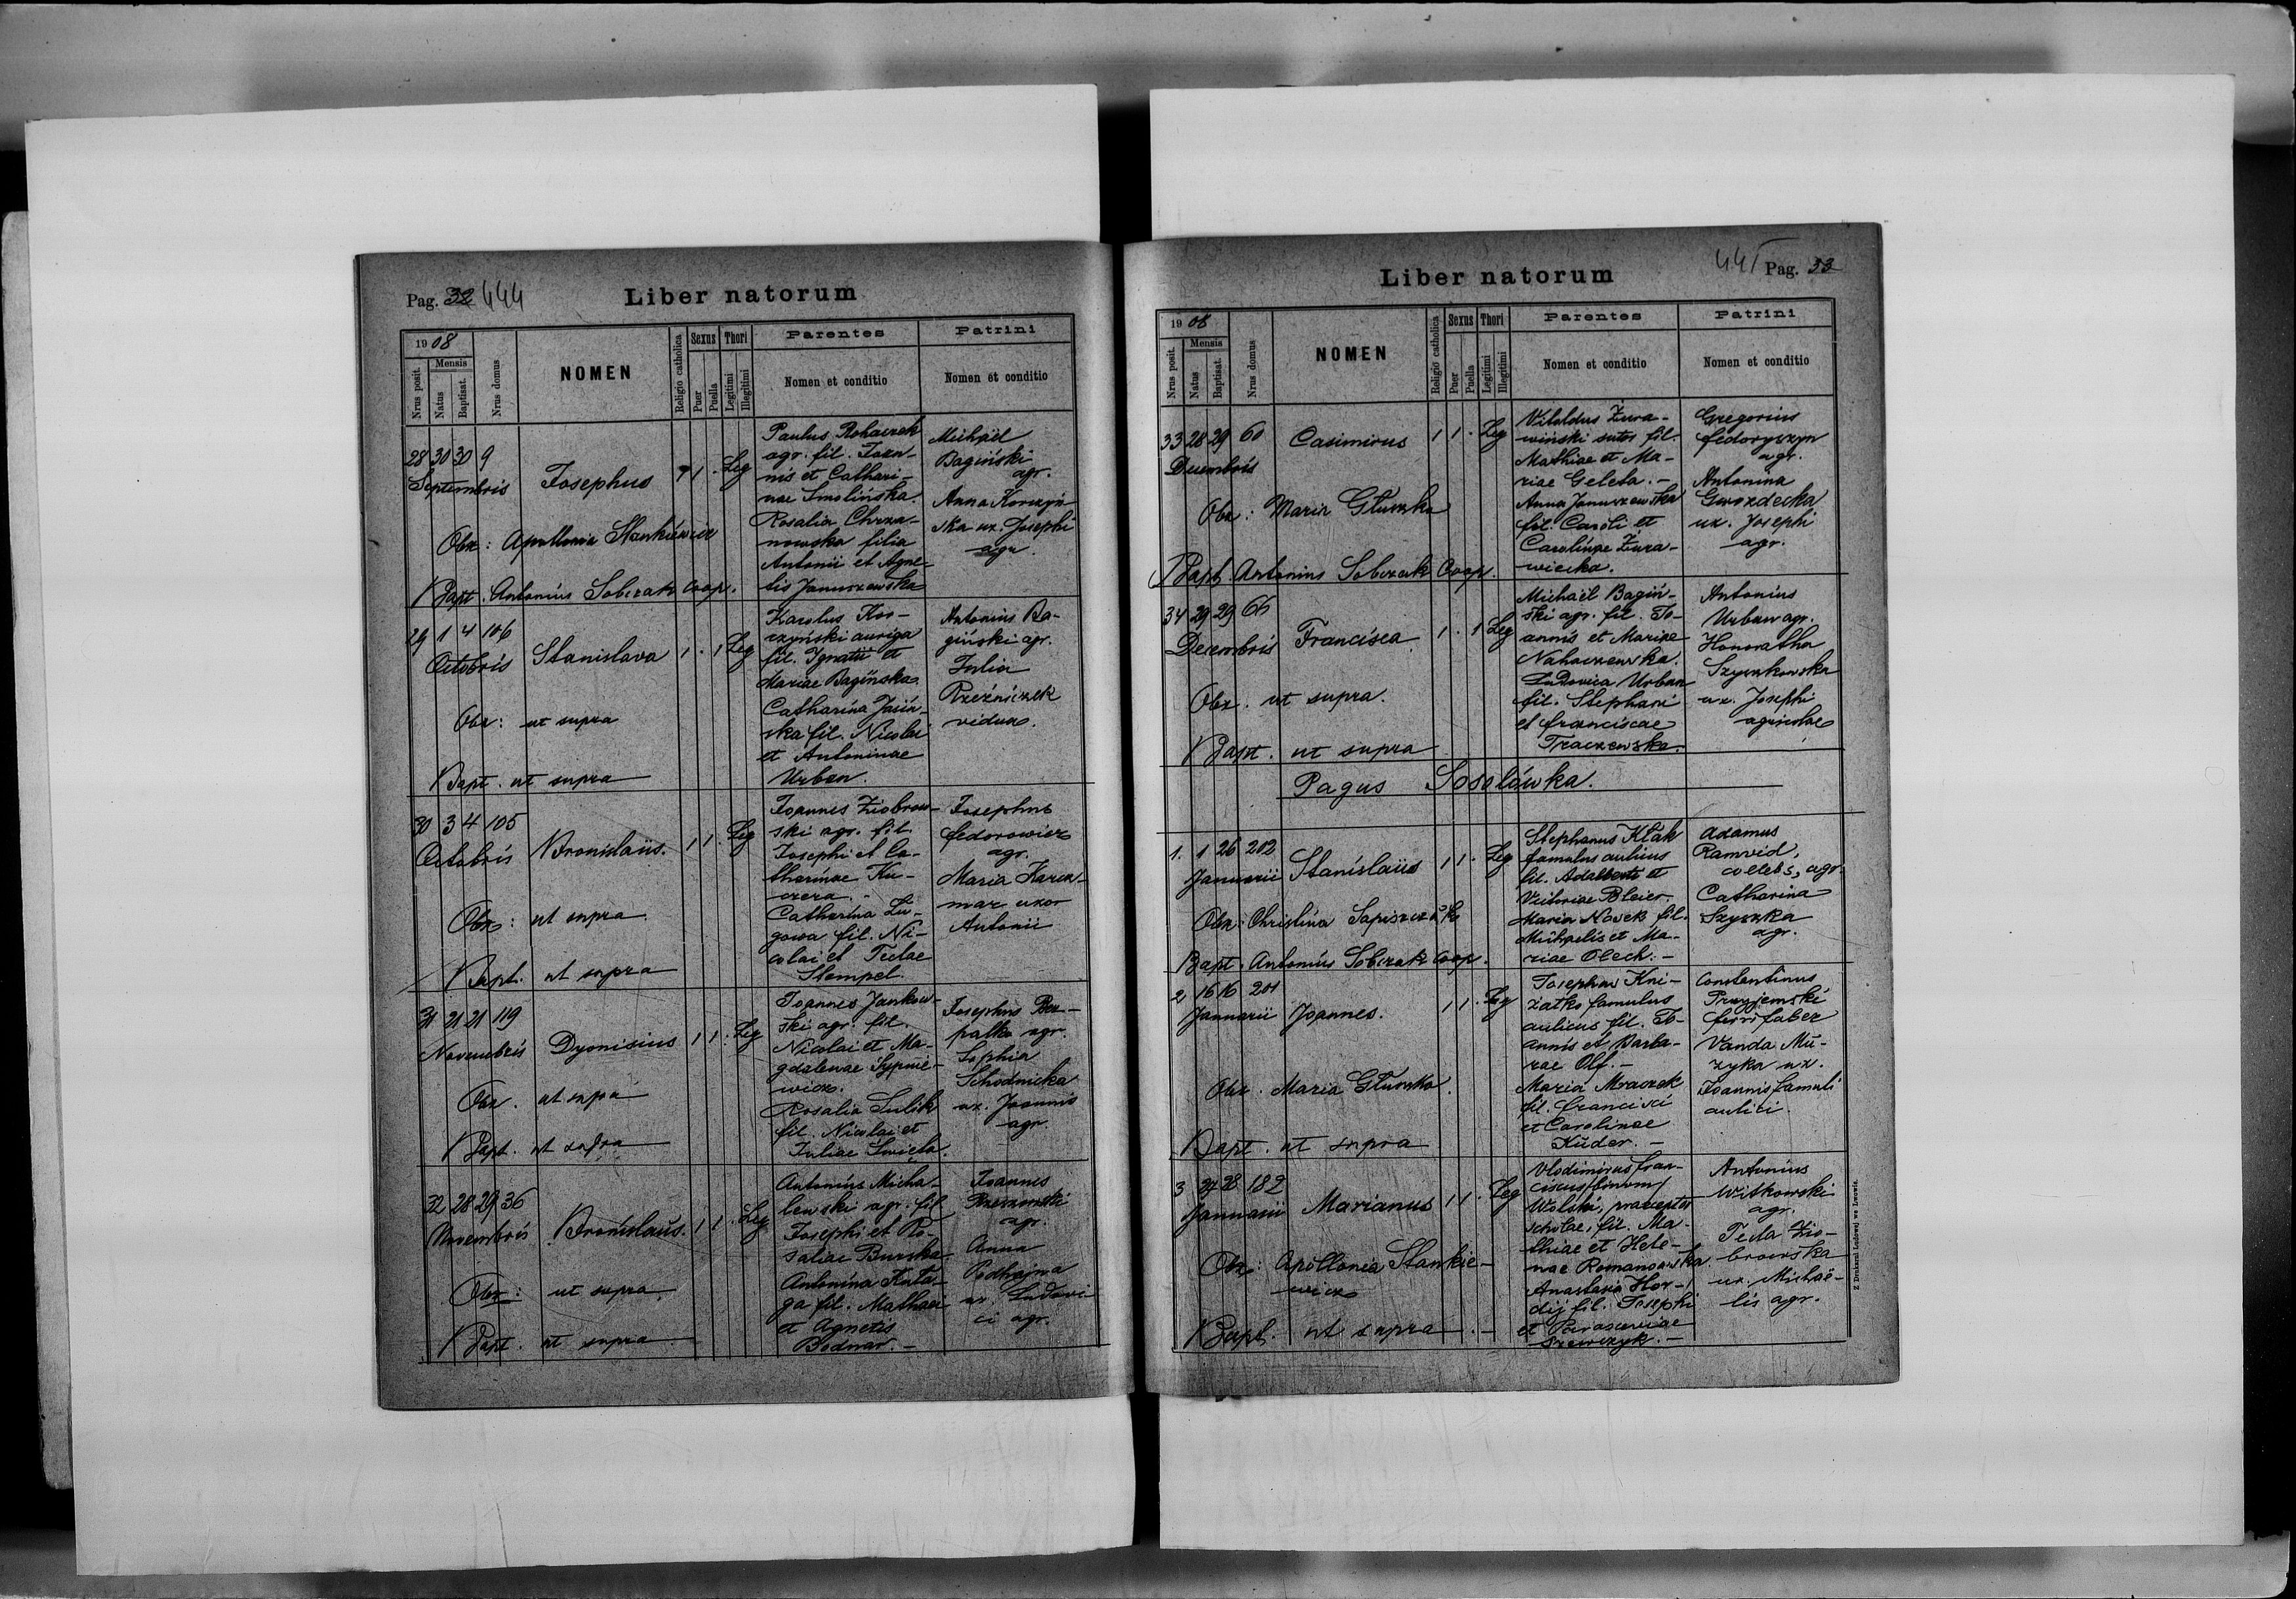 Pag. 32 444
Liber natorum
1908
Mensis
Nrus posit.
Natus
Baptisat.
Nrus domus
NOMEN
Religio catholica
Sexus
Puer
Puella
Thori
Legitimi
Illegitimi
Parentes
Nomen et conditio
Patrini
Nomen et conditio
28 30 30 9
Septembris
Josephus
1 1 . Leg
Obx: Apollonia Stankiewicz
Bapt. Antonius Sobczak Coop.
Paulus Rohaczek
agr. fil. Joan-
nis et Cathari-
nae Smolińska.
Rosalia Chrza-
nowska filia
Antonii et Agne-
tis Januszewska
Michaël
Bagiński
agr.
Anna Korczyń-
ska ux. Josephi
agr.
29 1 4 106
Octobris
Stanislava
1 . 1 Leg
Obx: ut supra
Bapt. ut supra
Karolus Kor-
czyński auriga
fil. Ignatii et
Mariae Bagińska.
Catharina Jasiń-
ska fil. Nicolai
et Antoninae
Urban.
Antonius Ba-
giński agr.
Julia
Rzeźniczek
vidua.
30 3 4 105
Octobris
Bronislaüs.
1 1 . Leg
Obx: ut supra.
Bapt. ut supra
Joannes Ziobrow-
ski agr. fil.
Josephi et Ca-
tharinae Ku-
czera. -
Catharina Lu-
gowa fil. Ni-
colai et Teclae
Stempel.
Josephus
Fedorowicz
agr.
Maria Karcz-
mar uxor
Antonii
31 21 21 119
Novembris
Dyonisius
1 1 . Leg
Obx. ut supra
Bapt. ut supra
Joannes Jankow-
ski agr. fil.
Nicolai et Ma-
gdalenae Sypnie-
wicz.
Rosalia Lulik
fil. Nicolai et
Juliae Święta.
Josephus Bez-
palko agr.
Sophia
Schodnicka
ux. Joannis
agr.
32 28 29 36
Novembris
Bronislaüs.
1 1 . Leg
Obx: ut supra
Bapt. ut supra
Antonius Micha-
lewski agr. fil
Josephi et Ro-
saliae Burska.
Antonina Kuta-
ga fil. Mathaei
et Agnetis
Bodnar. -
Joannes
Rzeszowski
agr.
Anna
Podhajna
ux. Ludovi
ci agr.
Liber natorum
445 Pag. 33
1908
Mensis
Nrus posit.
Natus
Baptisat.
Nrus domus
NOMEN
Religio catholica
Sexus
Puer
Puella
Thori
Legitimi
Illegitimi
Parentes
Nomen et conditio
Patrini
Nomen et conditio
33 28 29 60
Decembris
Casimirus
1 1 . Leg
Obx: Maria Głuszka
Bapt. Antonius Sobczak Coop.
Vitoldus Żura-
wiński sutor fil.
Mathiae et Ma-
riae Geleta. -
Anna Januszewska
fil. Caroli et
Carolinae Żura-
wiecka.
Gregorius
Fedoryszyn
agr.
Antonina
Gwozdecka
ux. Josephi
agr.
34 29 29 66
Decembris
Francisca
1 . 1 Leg
Obx. ut supra.
Bapt. ut supra
Michaël Bagiń-
ski agr. fil. Jo-
annis et Mariae
Nahaczewska.
Ludovica Urban
fil. Stephani
et Franciscae
Traczewska.
Antonius
Urban agr.
Honoratha
Szyszkowska
ux. Josephi
agricolae
Pagus Sosolówka.
1. 1 26 202
Januarii
Stanislaüs
1 1 . Leg
Obx: Christina Sapiszczak
Bapt. Antonius Sobczak Coop.
Stephanus Kłak
famulus aulicus
fil. Adalberti et
Victoriae Bleier.
Maria Nowek fil.
Michaelis et Ma-
riae Oleck. -
Adamus
Ramvid,
coelebs, agr.
Catharina
Szyszka
agr.
2 16 16 201
Januarii
Joannes.
1 1 . Leg
Obx. Maria Głuszka.
Bapt. ut supra
Josephus Kni-
ziatko famulus
aulicus fil. Jo-
annis et Barba-
rae Olf. -
Maria Mraczek
fil. Francisci
et Carolinae
Kuder. -
Constantinus
Przyjemski
ferrifaber
Vanda Mu-
zyka ux.
Joannis famuli
aulici.
3 24 28 182
Januarii
Marianus
1 1 . Leg
Obx: Apollonia Stankie-
wicz
Bapt. ut supra. -
Vlodimirus Fran-
ciscus /binom/
Wolski, praeceptor
scholae, fil. Ma-
thiae et Hele-
nae Romanowska.
Anastasia Hor-
dij fil. Josephi
et Parasceviae
Szewczyk. -
Antonius
Witkowski
agr.
Tecla Zio-
browska
ux. Michaë-
lis agr.
Z Drukarni Ludowej we Lwowie.